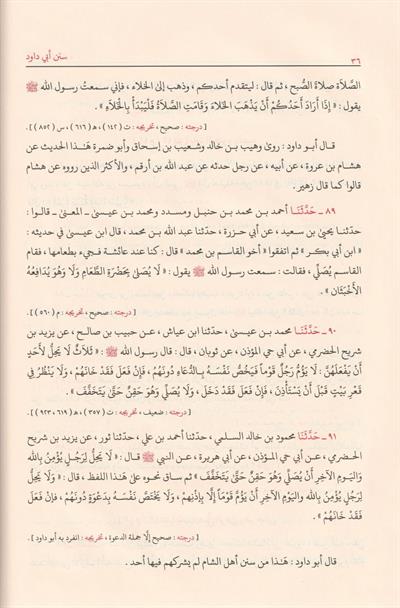 ٣٦
سنن أبي داود
الصَّلَاةَ صلاةُ الصُّبح ، ثم قال : ليتقدم أحدكم ، وذهب إلى الخلاء ، فإني سمعتُ رسول الله ﷺ
يقول : « إِذَا أَرَادَ أَحَدُكُمْ أَنْ يَذْهَبَ الخَلَاءَ وَقَامَتِ الصَّلَاةُ فَلْيَبْدَأْ بِالْخَلَاءِ » .
[ درجته : صحيح ، تخريجه : ت ( ١٤٢ ) ، هـ ( ٦١٦ ) ، س ( ٨٥٢ ) ] .
قال أبو داود : روىٰ وهيب بن خالد وشعيب بن إسحاق وأبو ضمرة هَـٰذا الحديث عن
هشام بن عروة ، عن أبيه ، عن رجل حدثه عن عبد الله بن أرقم ، والأكثر الذين رووه عن هشام
قالوا كما قال زهير .
٨٩ ــ حَدَّثَنَا أحمد بن محمد بن حنبل ومسدد ومحمد بن عيسىٰ ــ المعنىٰ ــ قالـوا :
حدثنا يحيىٰ بن سعيد ، عن أبي حزرة ، حدثنا عبد الله بن محمد ، قال ابن عيسىٰ في حديثه :
« ابن أبي بكر » ثم اتفقوا « أخو القاسم بن محمد » قال : كنا عند عائشة فجيء بطعامها ، فقام
القاسم يُصَلِّي ، فقالت : سـمعت رسول الله ﷺ يقول : « لَا يُصَلَّىٰ بِحَضْرَةِ الطَّعَامِ وَلَا وَهُوَ يُدَافِعُهُ
الأَخْبَثَانِ » .
[ درجته : صحيح ، تخريجه : م ( ٥٦٠ ) ] .
٩٠ ــ حَدَّثَنَا محمد بن عيسىٰ ، حدثنا ابن عياش ، عن حبيب بن صالح ، عن يزيد بن
شريح الحضرمي ، عن أبي حي المؤذن ، عن ثوبان ، قال : قال رسول الله ﷺ : « ثَلَاثٌ لَا يَحِلُّ لِأَحَدٍ
أَنْ يَفْعَلَهُنَّ : لَا يَؤُمُّ رَجُلٌ قَوْماً فَيَخُصُّ نَفْسَهُ بِالدُّعَاءِ دُونَهُمْ ، فَإِنْ فَعَلَ فَقَدْ خَانَهُمْ ، وَلَا يَنْظُرُ فِي
قَعْرِ بَيْتٍ قَبْلَ أَنْ يَسْتَأْذِنَ ، فَإِنْ فَعَلَ فَقَدْ دَخَلَ ، وَلَا يُصَلِّي وَهُوَ حَقِنٌ حَتَّىٰ يَتَخَفَّفَ » .
[ درجته : ضعيف ، تخريجه : ت ( ٣٥٧ ) ، هـ ( ٦١٩ ، ٩٢٣ ) ] .
٩١ ــ حَدَّثَنَا محمود بن خالد السلمي ، حدثنا أحمد بن علي ، حدثنا ثور ، عن يزيد بن شريح
الحضرمي ، عن أبي حي المؤذن ، عن أبي هريرة ، عن النبي ﷺ قال : « لَا يَحِلُّ لِرَجُلٍ يُؤْمِنُ بِاللهِ
وَاليَوْمِ الآخِرِ أَنْ يُصَلِّيَ وَهُوَ حَقِنٌ حَتَّىٰ يَتَخَفَّفَ » ثم ساق نحوه علىٰ هَـٰذا اللفظ ، قال : « وَلَا يَحِلُّ
لِرَجُلٍ يُؤْمِنُ بِاللهِ واليَوْمِ الآخِرِ أَنْ يَؤُمَّ قَوْماً إِلَّا بِإِذْنِهِمْ ، وَلَا يَخْتَصَّ نَفْسَهُ بِدَعْوَةٍ دُونَهُمْ ، فَإِنْ فَعَلَ
فَقَدْ خَانَهُمْ » .
[ درجته : صحيح إلَّا جملة الدعوة ، تخريجه : انفرد به أبو داود ] .
قال أبو داود : هَـٰذا من سنن أهل الشام لم يشركهم فيها أحد .